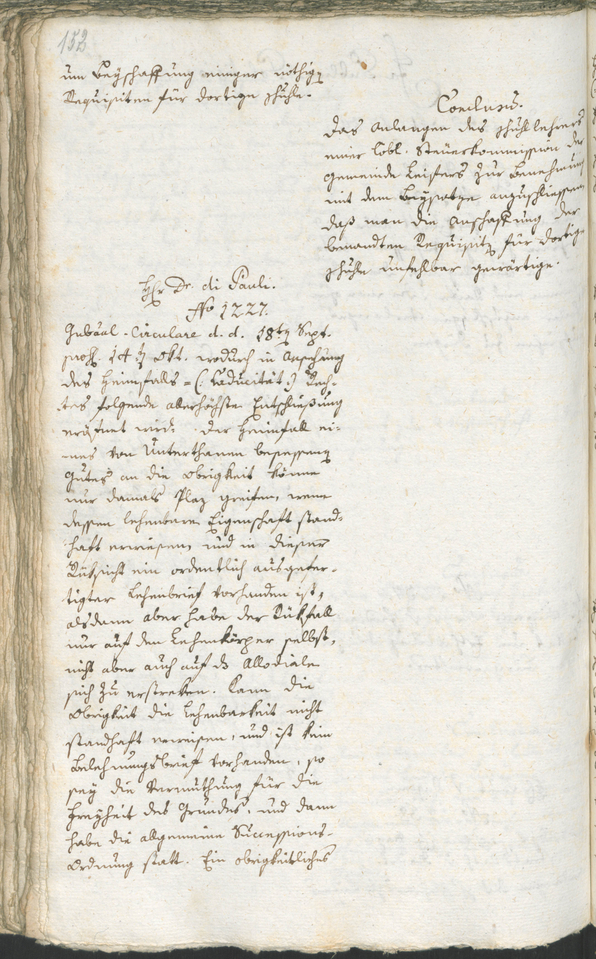 152
um Beyschaffung einiger nöthige
Requisiten für dortige Schule.
Conclusum.
Das Anlangen des Schullehrers
einer löbl. Steuerkommission der
Gemeinde Leifers zur Benehmung
mit dem Beysatze anzuschliessen
daß man die Anschaffung der
benandten Requisiten für dortige
Schule unfehlbar gewärtige.
Hr. Dr. di Pauli.
No 1227.
Gubernal-Circulare d. d. 18ten Sept.
14 Okt. wodurch in Ansehung
des Heimfalls = (: Caducität :) Rech-
tes folgende allerhöchste Entschließung
eröfnet wird: der Heimfall ei-
nes von Unterthanen besessenen
Gutes an die Obrigkeit könne
nur damals Plaz greifen, wenn
dessen lehenbare Eigenschaft stand-
haft erwiesen, und in dieser
Rüksicht ein ordentlich ausgefer-
tigter Lehenbrief vorhanden ist,
alsdann aber habe der Rükfall
nur auf den Lehenkörper selbst,
nicht aber auch auf das Allodiale
sich zu erstreken. Kann die
Obrigkeit die Lehenbarkeit nicht
standhaft erweisen, und ist kein
Belehnungsbrief vorhanden, so
sey die Vermuthung für die
Freyheit des Grundes, und dann
habe die allgemeine Successions-
Ordnung statt. Ein obrigkeitliches